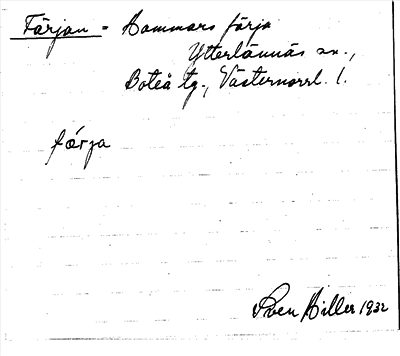 Färjan = Hammars färja
Ytterlännäs sn.,
Boteå tg., Västernorrl. l.
färja
Sven Hiller 1932